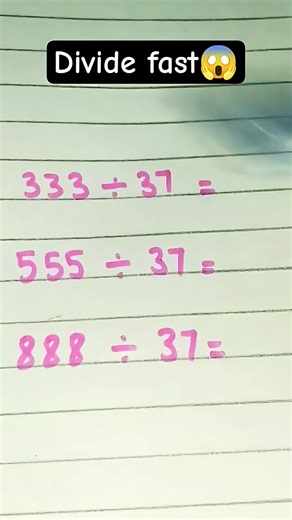 Divide fast😱
333 ÷ 37 =
555 ÷ 37 =
888 ÷ 37 =